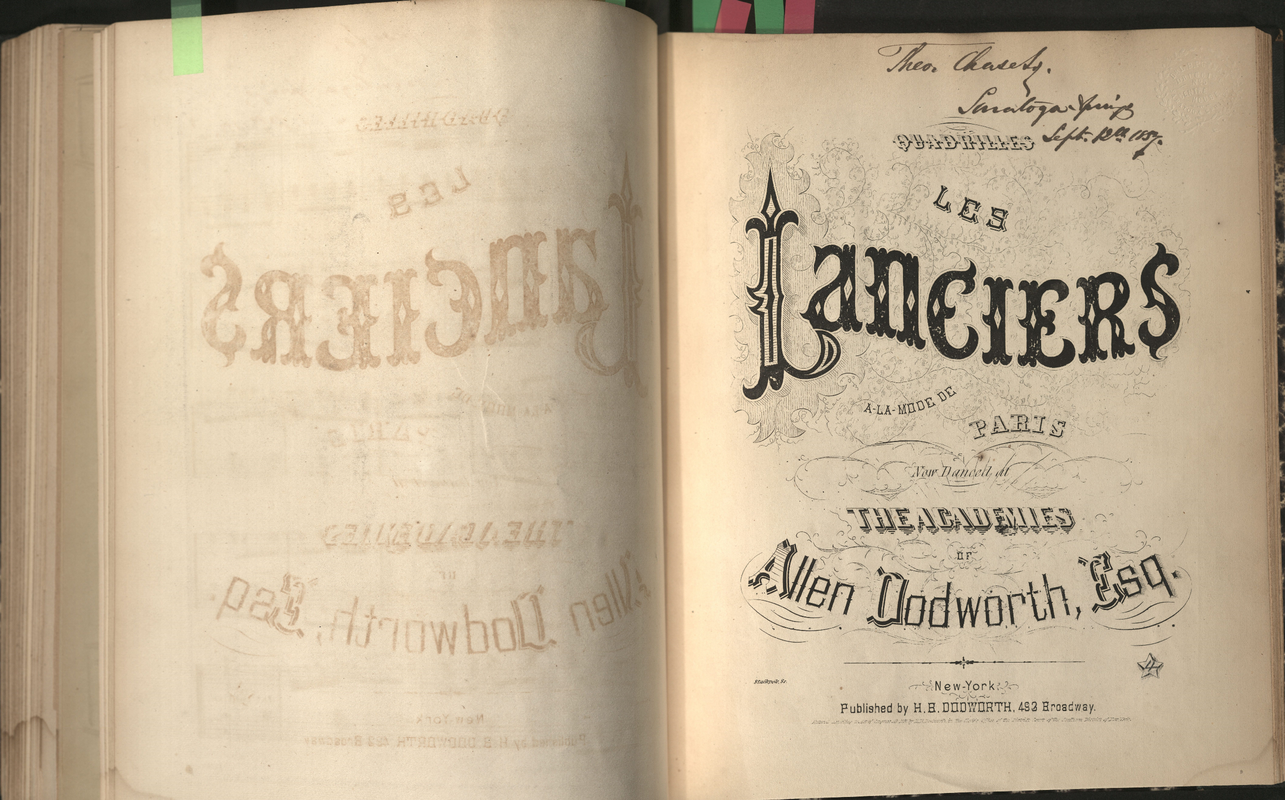 Theo. Chase
Saratoga Springs
Sept. 12th 1857.
QUADRILLES
LES
LANCIERS
A-LA-MODE DE
PARIS
Now Danced at
THE ACADEMIES
OF
Allen Dodworth, Esq.
4
New-York.
Published by H. B. DODWORTH, 493 Broadway.